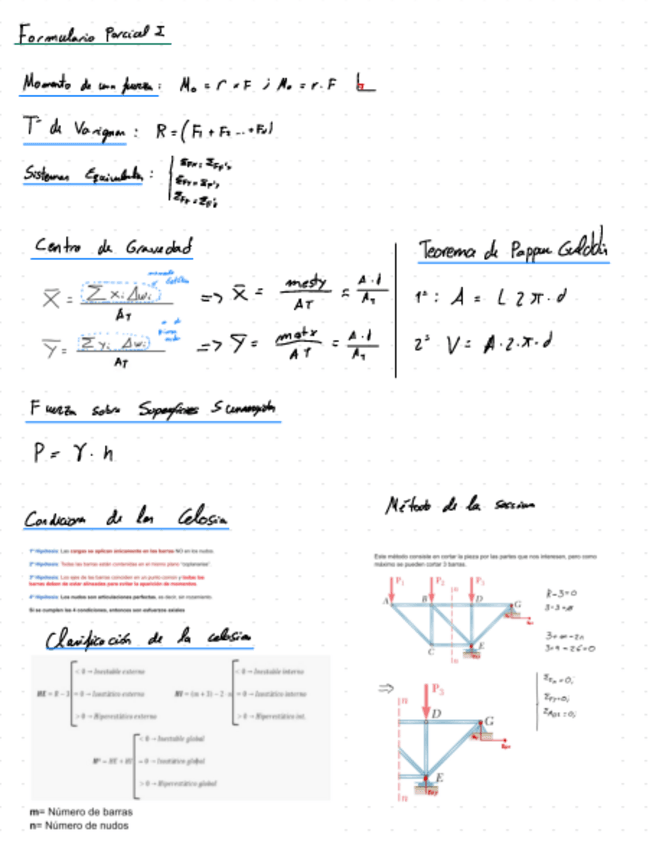 Formulario Parcial I
Momento de una fuerza: M₀ = r × F ; M₀ = r · F
T- de Varignon : R = (F₁ + F₂ ... + Fₙ)
Sistemas Equivalentes :
Centro de Gravedad
X̄ = Σ xᵢ Δwᵢ / AT => X̄ = mesty / AT = A·d / AT
Ȳ = Σ yᵢ Δwᵢ / AT => Ȳ = mestx / AT = A·d / AT
Teorema de Pappus Guldin
1º : A = L 2 π · d
2º V = A · 2 · π · d
Fuerza sobre Superficies Sumergida
P = γ · h
Condiciones de las Celosia
1ª Hipótesis: Las cargas se aplican únicamente en los nudos
2ª Hipótesis: Todas las barras están contenidas en el mismo plano "coplanarias".
3ª Hipótesis: Los ejes de las barras coinciden en un punto común y todas las
barras deben de estar alineadas para evitar la aparición de momentos.
4ª Hipótesis: Los nudos son articulaciones perfectas, es decir, sin rozamiento.
Si se cumplen las 4 condiciones, entonces son esfuerzos axiales
Clasificación de la celosia
GE = R - 3
< 0 → Inestable externo
= 0 → Isostático externo
> 0 → Hiperestático externo
GI = (m + 3) - 2 · n
< 0 → Inestable interno
= 0 → Isostático interno
> 0 → Hiperestático int.
< 0 → Inestable global
= 0 → Isostático global
> 0 → Hiperestático global
m= Número de barras
n= Número de nudos
Método de la seccion
Este método consiste en cortar la pieza por las partes que nos interesen, pero como
máximo se pueden cortar 3 barras.
P₁ P₂ P₃
A B D G
C E
n
n
R - 3 = 0
3 - 3 = 0
3 + m - 2n
=> P₃
n
D
G
E
n
ΣFx = 0;
ΣFy = 0;